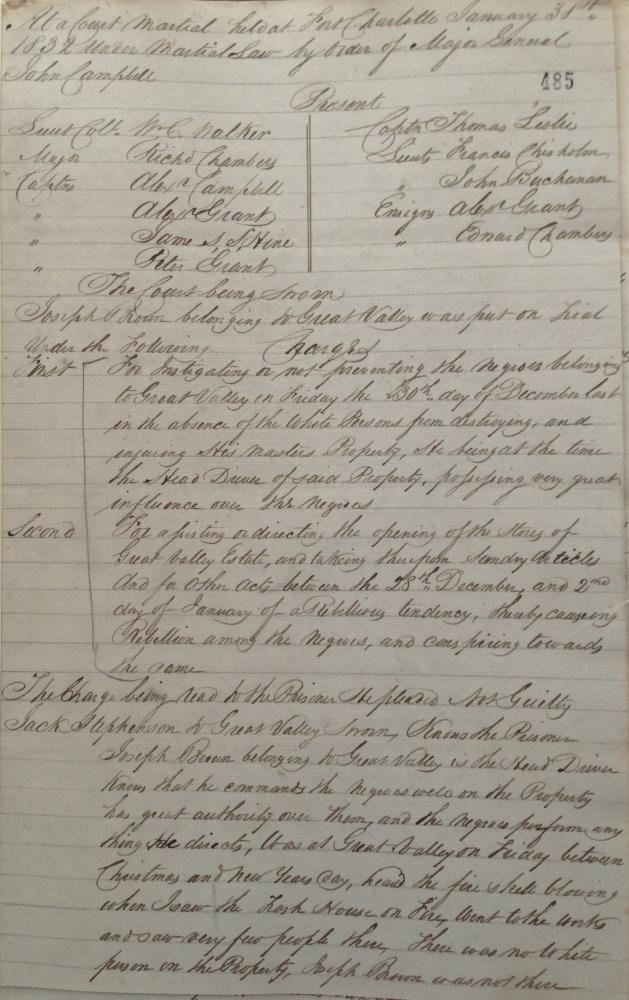 At a Court Martial held at Fort Charlotte January 31st
1832 Under Martial Law by Order of Major General
John Campbell
485
Present
Lieut Coll. W. C. Walker
Major Richd Chambers
Captns Alexr Campbell
" Alexr Grant
" James S. S. Hine
" Peter Grant
Captn Thomas Leslie
Lieuts Francis Chisholm
" John Buchanan
Ensigns Alexr Grant
" Edward Chambers
The Court being Sworn
Joseph Brown belonging to Great Valley was put on Trial
Under the Following Charges
First For Instigating or not preventing the Negroes belonging
to Great Valley on Friday the 30th day of December last
in the absence of the White Persons from destroying, and
injuring His Masters Property, He being at the time
the Head Driver of said Property, possessing very great
influence over the Negroes
Second For assisting or directing the opening of the Stores of
Great Valley Estate, and taking therefrom Sundry Articles
And for Other Acts between the 28th December, and 2nd
day of January of a Rebellious tendency, thereby causing
Rebellion among the Negroes, and conspiring towards
the same
The Charge being read to the Prisoner He pleaded Not Guilty
Jack Stephenson to Great Valley Sworn, Knows the Prisoner
Joseph Brown belonging to Great Valley is the Head Driver
Knows that he commands the Negroes well on the Property
has great authority over them, and the Negroes perform any
thing He directs, Was at Great Valley on Friday between
Christmas and New Years Day, heard the fire shell blowing
when I saw the Trash House on Fire, Went to the works
and saw very few people there, There was no White
person on the Property, Joseph Brown was not there